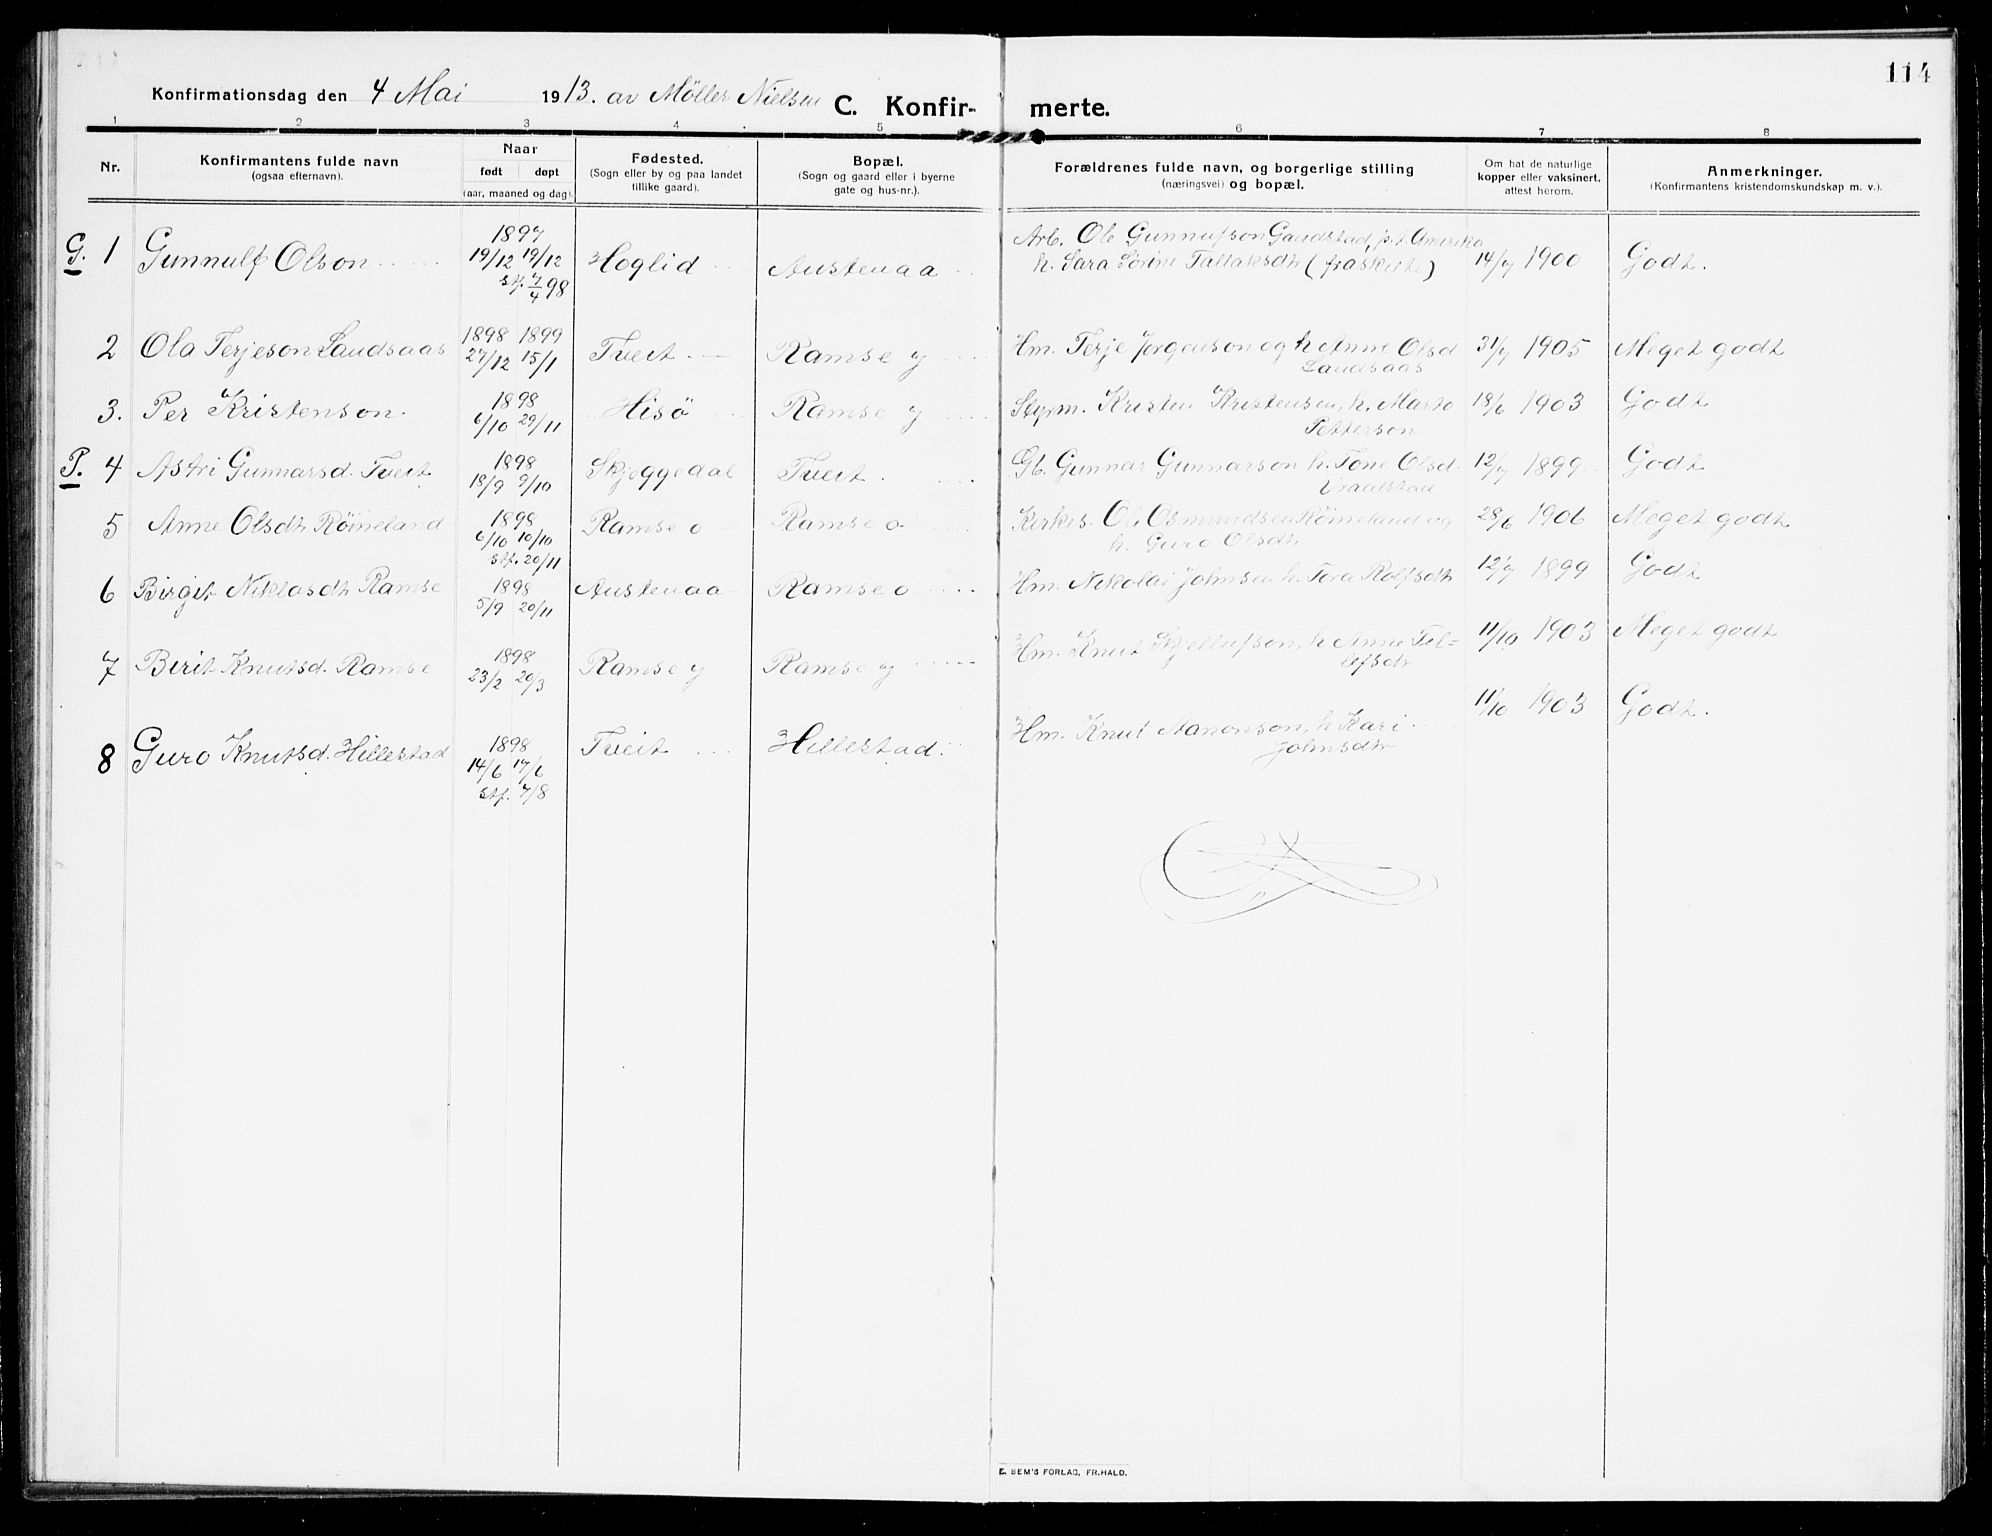 114
Konfirmationsdag den 4 Mai 1913. av Möller Nielsen C. Konfir- merte.
1 2 3 4 5 6 7 8
Nr.
Konfirmantens fulde navn
(ogsaa efternavn).
Naar
født døpt
(aar, maaned og dag).
Fødested.
(Sogn eller by og paa landet
tillike gaard).
Bopæl.
(Sogn og gaard eller i byerne
gate og hus-nr.).
Forældrenes fulde navn, og borgerlige stilling
(næringsvei) og bopæl.
Om hat de naturlige
kopper eller vaksinert,
attest herom.
Anmerkninger.
(Konfirmantens kristendomskundskap m. v.).
G. 1 Gunnulf Olson
1897
19/12 19/12
stf. 7/4 98
Høglid
Austenaa
Arb. Ole Gunnufson Gaudstad, p.t. Amerika
h. Sara Sörine Tallaksdtr (fraskilte)
14/7 1900
Godt.
2 Ola Terjeson Landsaas
1898 1899
27/12 15/1
Tveit
Ramse y
Hm. Terje Jørgenson og h Anne Olsd
Landsaas
31/7 1905
Meget godt
3. Per Kristenson.
1898
6/10 29/11
Hisö
Ramse y
Styrm. Kristen Kristensen, h. Marta
Petterson
18/6 1903
Godt
P. 4 Astri Gunnarsd. Tveit
1898
18/9 9/10
Skjeggedal
Tveit.
Gb. Gunnar Gunnarson h. Tone Olsd.
Vraalstad
12/7 1899
Godt
5 Anne Olsdtr Röineland
1898
6/10 10/10
stf. 20/11
Ramse o
Ramse o
Kirkes. Ole Osmundsen Röineland og
h. Guro Olsdtr
28/6 1906
Meget godt
6 Birgit Niklasdtr Ramse
1898
5/9 20/11
Austenaa
Ramse o
Hm. Nikolai Johnsen h. Tora Rolfsdtr
12/7 1899
Godt
7 Berit Knutsd. Ramse
1898
23/2 20/3
Ramse y
Ramse y
Hm. Knut Skjellufson, h Anne Tel-
lefsdtr
11/10 1903
Meget godt
8 Guro Knutsd. Hillestad
1898
14/6 17/6
stf. 7/8
Tveit
Hillestad.
Hm. Knut Aanonson, h Kari
Johnsdtr
11/10 1903
Godt.
E. SEM'S FORLAG, FR.HALD.